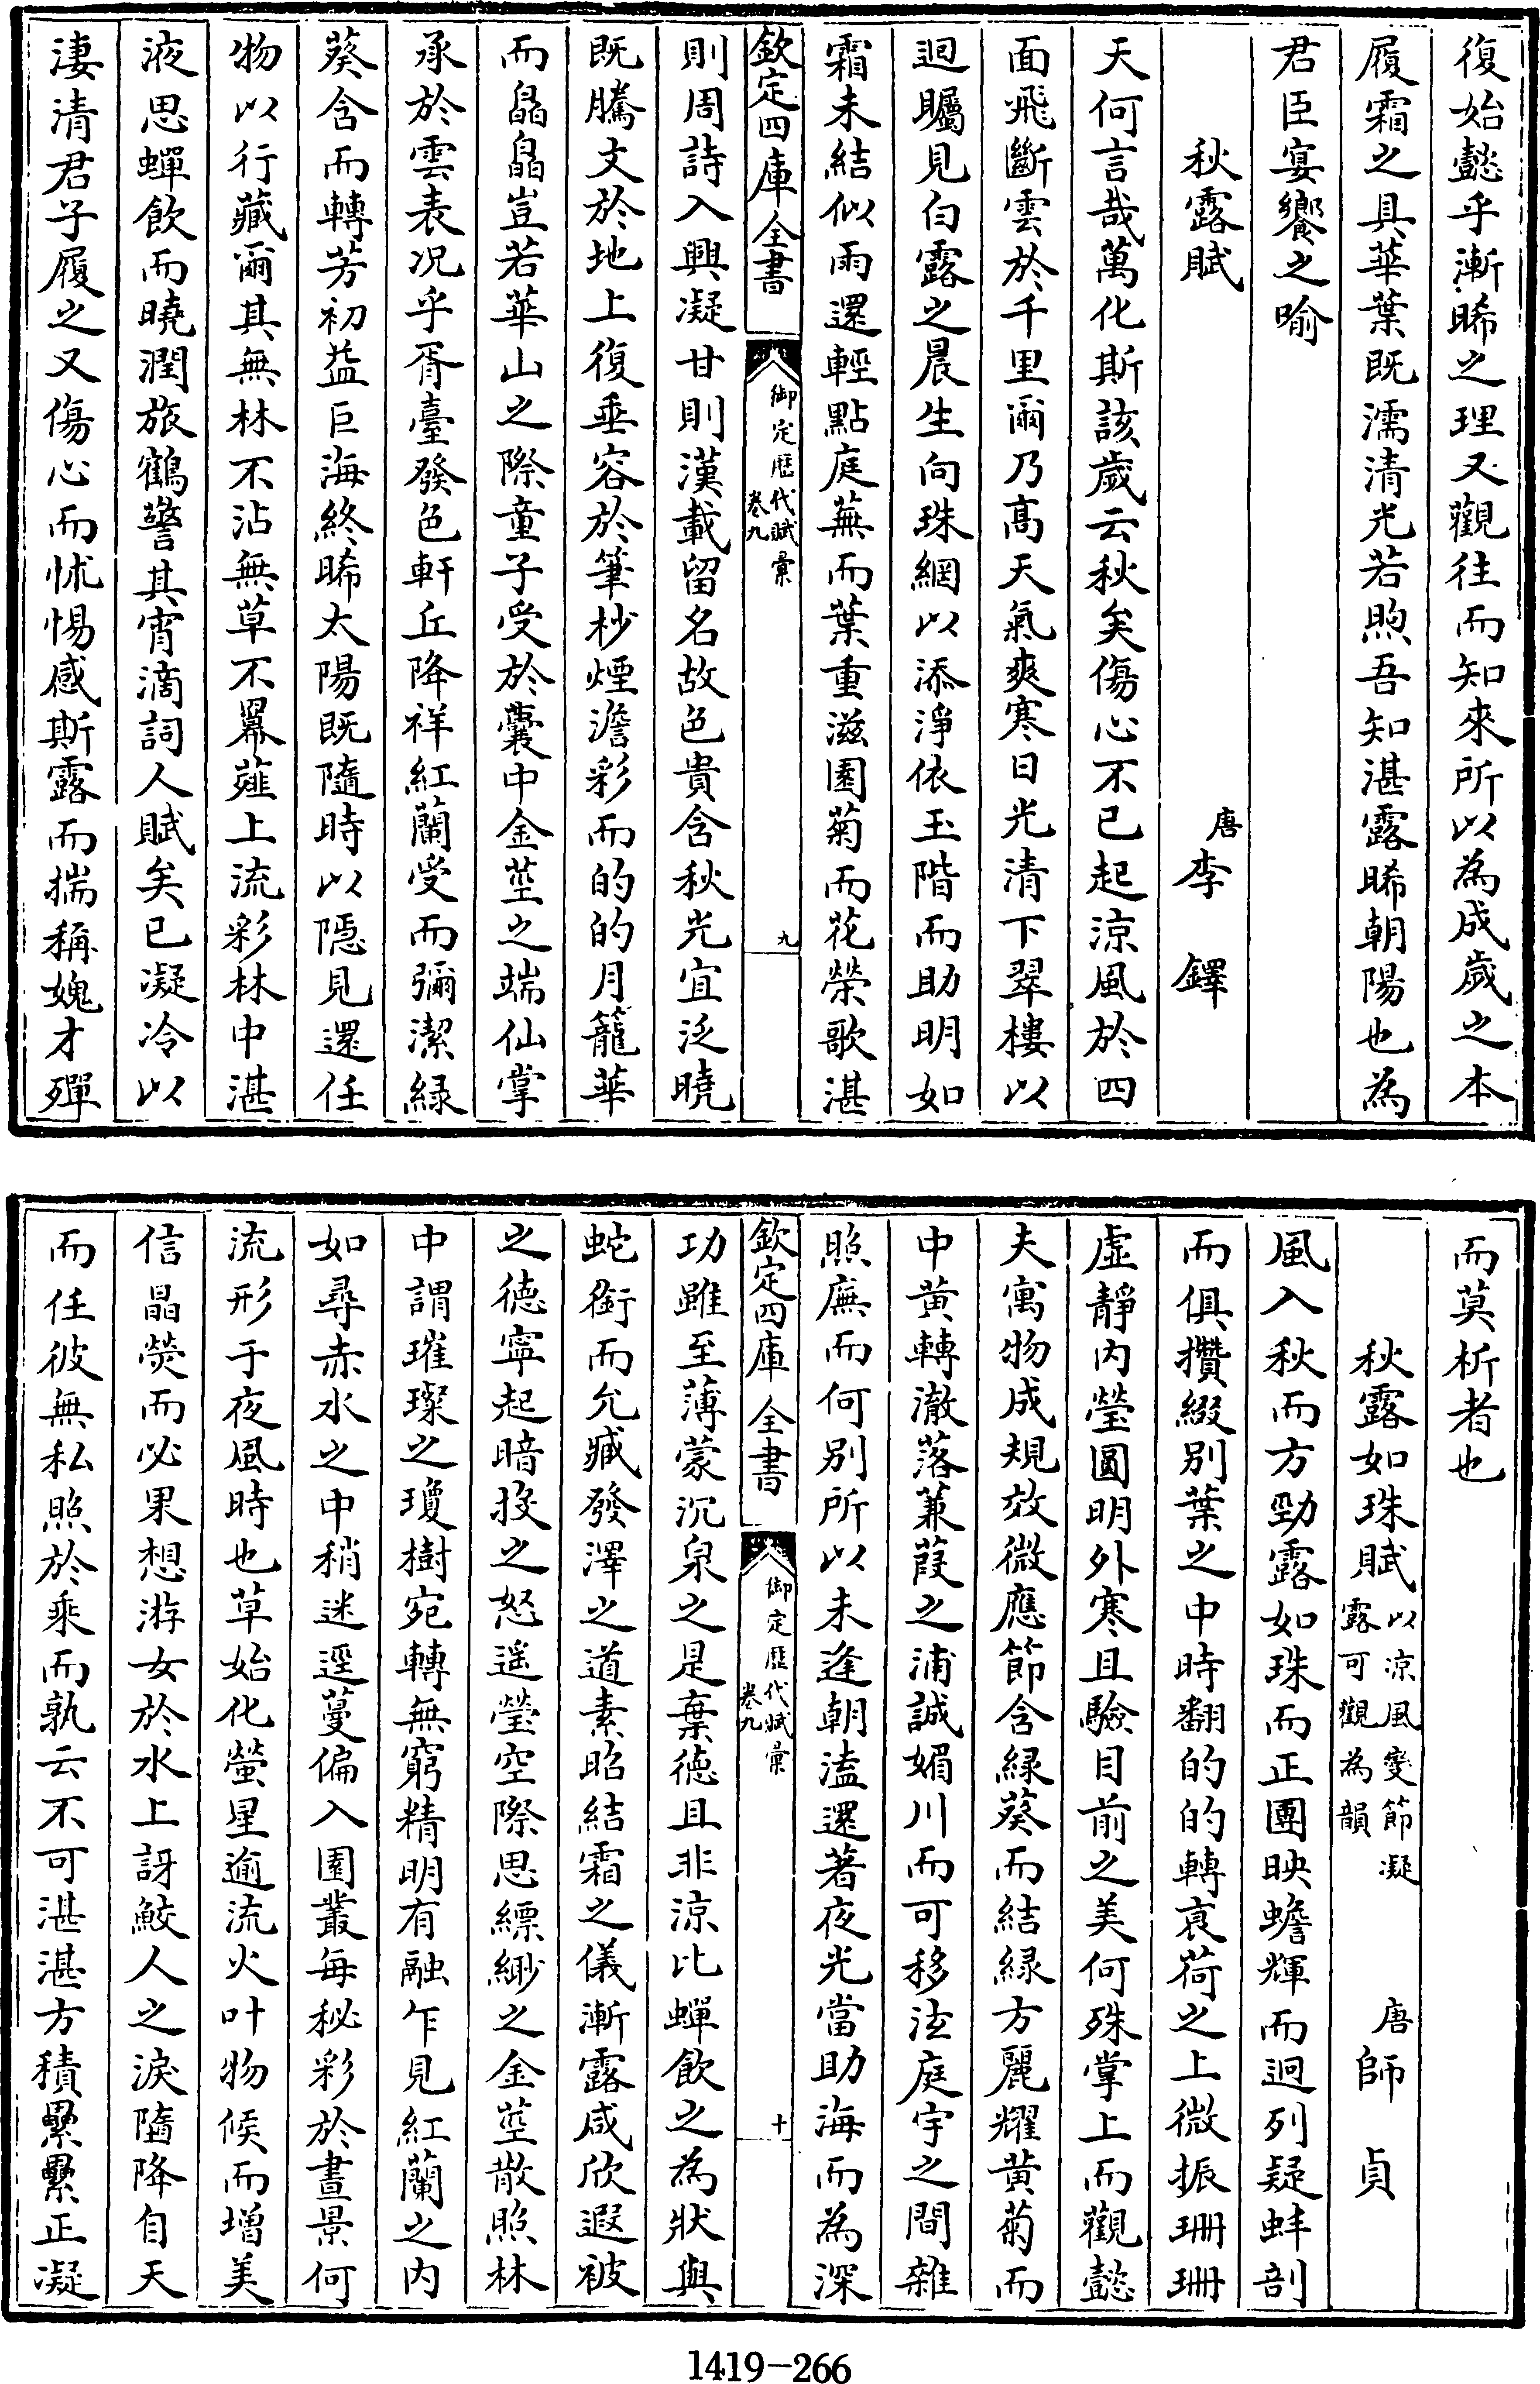 復始懿乎漸晞之理又觀往而知來所以為成歲之本
履霜之具華葉既濡清光若煦吾知湛露晞朝陽也為
君臣宴饗之喻
秋露賦
唐李鐸
天何言哉萬化斯該歲云秋矣傷心不已起涼風於四
面飛斷雲於千里爾乃高天氣爽寒日光清下翠樓以
迥矚見白露之晨生向珠網以添淨依玉階而助明如
霜未結似雨還輕點庭蕪而葉重滋園菊而花榮歌湛
欽定四庫全書
御定歷代賦彙
卷九
九
則周詩入興凝甘則漢載留名故色貴含秋光宜泛曉
既騰文於地上復垂容於筆杪煙澹彩而的的月籠華
而皛皛豈若華山之際童子受於囊中金莖之端仙掌
承於雲表况乎胥臺發色軒丘降祥紅蘭受而彌潔緑
葵含而轉芳初益巨海終晞太陽既隨時以隱見還任
物以行藏爾其無林不沾無草不羃薤上流彩林中湛
液思蟬飲而曉潤旅鶴警其宵滴詞人賦矣已凝冷以
淒清君子履之又傷心而怵惕感斯露而揣稱媿才殫
而莫析者也
秋露如珠賦以涼風變節凝
露可觀為韻
唐師貞
風入秋而方勁露如珠而正團映蟾輝而迥列疑蚌剖
而俱攢綴別葉之中時翻的的轉哀荷之上微振珊珊
虛靜内瑩圓明外寒且驗目前之美何殊掌上而觀懿
夫寓物成規效微應節含緑葵而結緑方麗耀黄菊而
中黄轉澈落蒹葭之浦誠媚川而可移泫庭宇之間雜
照廡而何别所以未逢朝溘還著夜光當助海而為深
欽定四庫全書
御定歷代賦彙
卷九
十
功雖至薄蒙沉泉之是棄徳且非涼比蟬飲之為狀與
蛇銜而允臧發澤之道素昭結霜之儀漸露咸欣遐被
之徳寧起暗投之怒遥瑩空際思縹緲之金莖散照林
中謂璀璨之瓊樹宛轉無窮精明有融乍見紅蘭之内
如尋赤水之中稍迷逕蔓偏入園叢每秘彩於晝景何
流形于夜風時也草始化螢星逾流火叶物候而增美
信晶熒而必果想游女於水上訝鮫人之淚隨降自天
而任彼無私照於乘而孰云不可湛湛方積纍纍正凝
1419-266